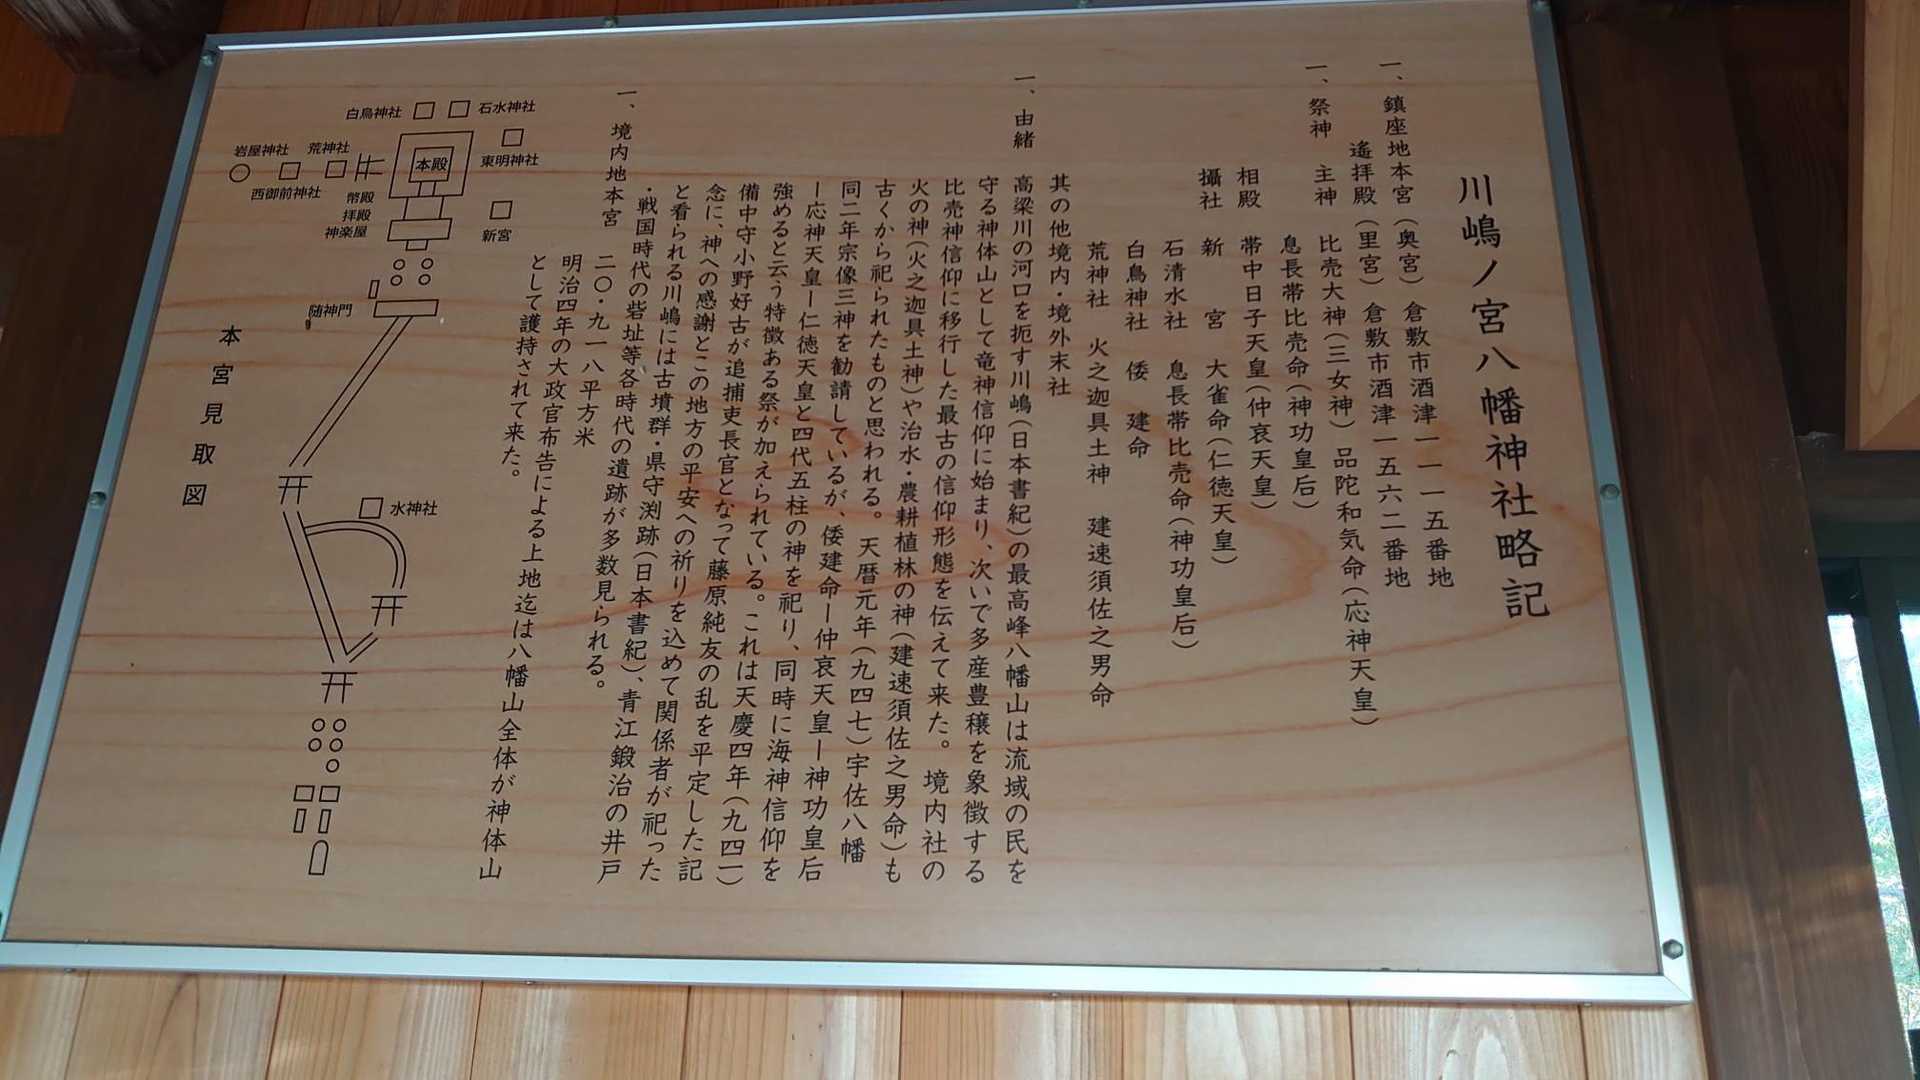 川嶋ノ宮八幡神社略記
一、鎮座地本宮（奥宮）倉敷市酒津一一一五番地
遙拝殿（里宮）倉敷市酒津一五六二番地
一、祭神　主神　比売大神（三女神）品陀和気命（応神天皇）
息長帯比売命（神功皇后）
相殿　帯中日子天皇（仲哀天皇）
攝社　新　宮　大雀命（仁徳天皇）
石清水社　息長帯比売命（神功皇后）
白鳥神社　倭　建命
荒神社　火之迦具土神　建速須佐之男命
其の他境内・境外末社
一、由緒　高梁川の河口を扼す川嶋（日本書紀）の最高峰八幡山は流域の民を
守る神体山として竜神信仰に始まり、次いで多産豊穣を象徴する
比売神信仰に移行した最古の信仰形態を伝えて来た。境内社の
火の神（火之迦具土神）や治水・農耕植林の神（建速須佐之男命）も
古くから祀られたものと思われる。天暦元年（九四七）宇佐八幡
同二年宗像三神を勧請しているが、倭建命ー仲哀天皇ー神功皇后
ー応神天皇ー仁徳天皇と四代五柱の神を祀り、同時に海神信仰を
強めると云う特徴ある祭が加えられている。これは天慶四年（九四一）
備中守小野好古が追捕吏長官となって藤原純友の乱を平定した記
念に、神への感謝とこの地方の平安への祈りを込めて関係者が祀った
と看られる川嶋には古墳群・県守渕跡（日本書紀）、青江鍛冶の井戸
・戦国時代の砦址等各時代の遺跡が多数見られる。
一、境内地本宮　二〇・九一八平方米
明治四年の大政官布告による上地迄は八幡山全体が神体山
として護持されて来た。
白鳥神社
石水神社
岩屋神社
荒神社
本殿
東明神社
西御前神社
幣殿
拝殿
神楽屋
新宮
随神門
水神社
本宮見取図